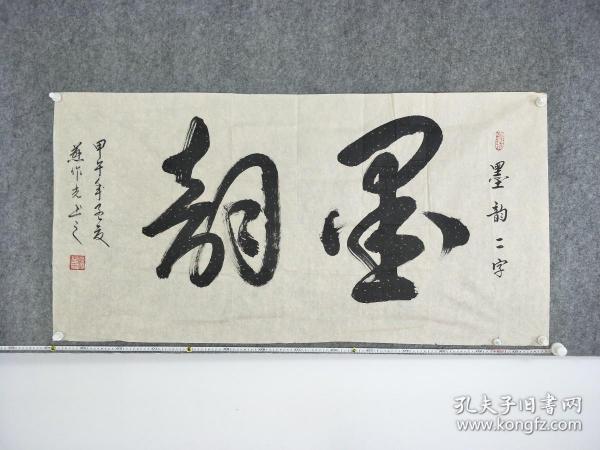 墨韵
墨韵二字
甲午年孟夏
燕作光书之
孔夫子旧书网
www.kongfz.com